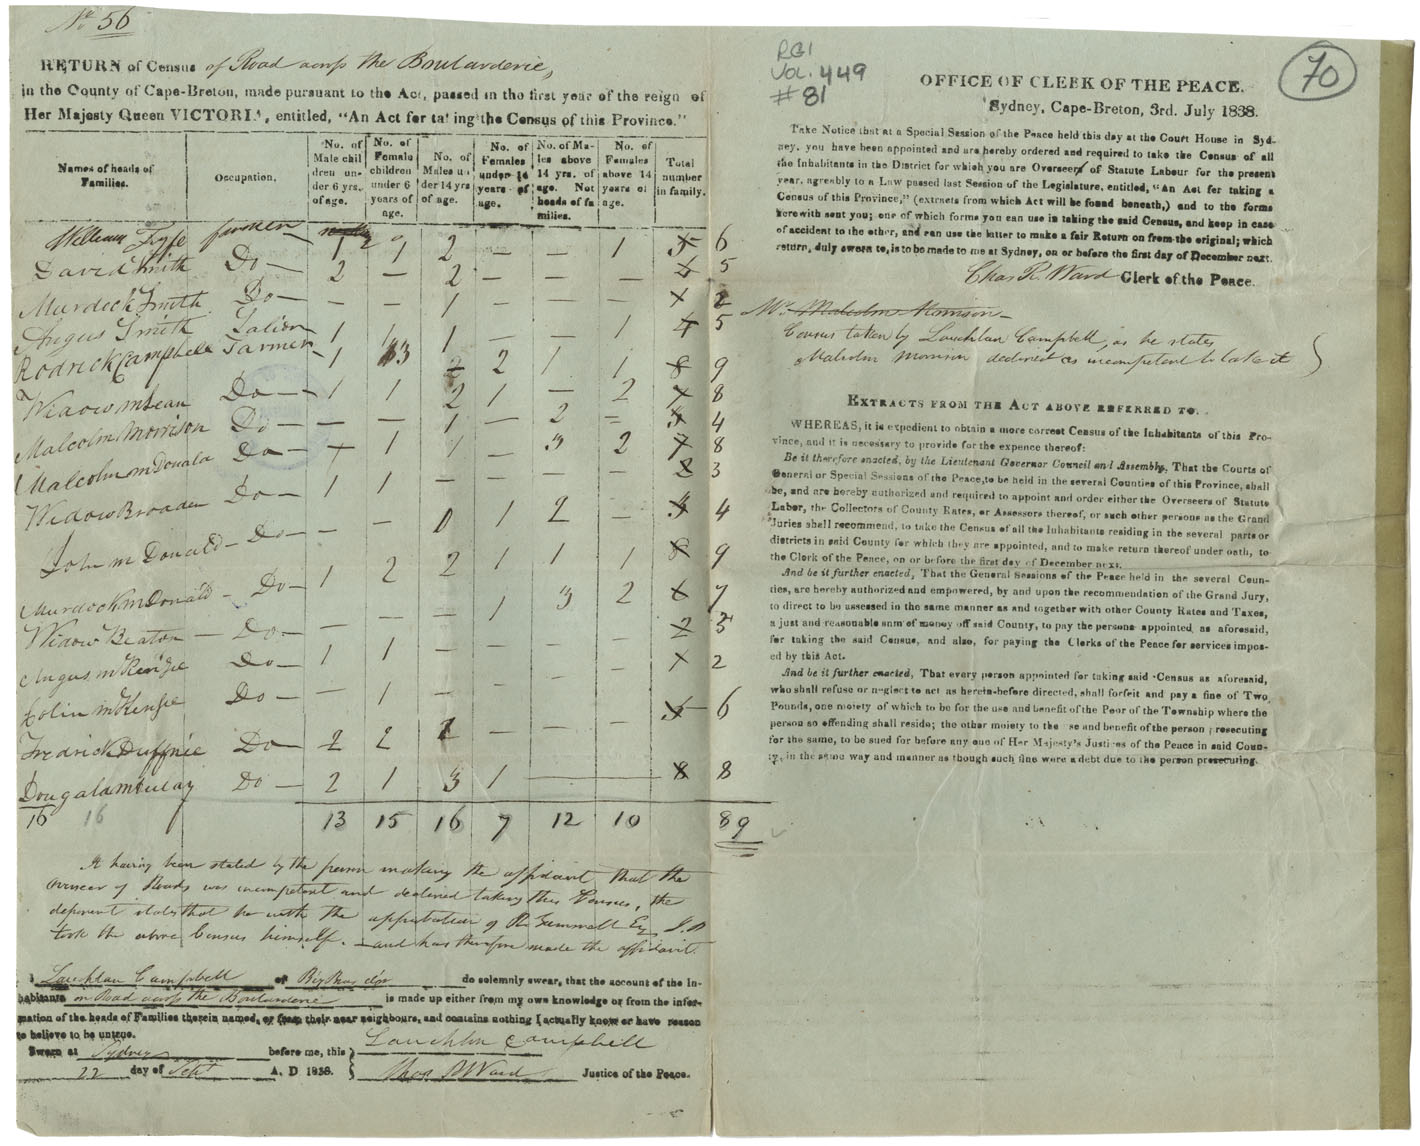 No 56
RETURN of Census of Road across the Boularderie,
in the County of Cape-Breton, made pursuant to the Act, passed in the first year of the reign of
Her Majesty Queen VICTORIA, entitled, "An Act for taking the Census of this Province."
Names of heads of Families. Occupation. No. of Male children under 6 yrs. of age. No. of Female children under 6 years of age. No. of Males under 14 yrs of age. No. of Females under 14 years of age. No. of Males above 14 yrs. of age. Not heads of families. No. of Females above 14 years of age. Total number in family.
William Fyfe farmer 1 1 2 — — 1 5 6
David Smith Do — 2 — 2 — — — 4 5
Murdock Smith Do — — — 1 — — — 1 2
Angus Smith Tailor 1 1 1 — — 1 4 5
Rodrick Campbell Farmer 1 3 2 2 1 1 8 9
Widow McLean Do — 1 1 2 1 — 2 7 8
Malcolm Morrison Do — — — 1 — 2 = 3 4
Malcolm McDonald Do — + 1 1 — 3 2 7 8
Widow Do — 1 1 — — — — 2 3
John McDonald — Do — — — 0 1 2 — 3 4
Murdock McDonald — Do — 1 2 2 1 1 1 8 9
Widow Beaton — Do — — — — 1 3 2 6 7
Angus McKenzie Do — 1 1 — — — — 2 3
Colin McKenzie Do — — 1 — — — — 1 2
Fredrick Duffnie Do — 2 2 1 — — — 5 6
Dougald McAulay Do — 2 1 3 1 8 8
16 16 13 15 16 7 12 10 89
It having been stated by the person making the affidavit that the
overseer of Roads was incompetent and declined taking this Census, the
deponent states that he with the approbation of Gammell Esq J.P
took the above Census himself. — and has therefore made the affidavit.
I Lauchlan Campbell of Big Bras d'or do solemnly swear, that the account of the In-
habitants on Road across the Boularderie is made up either from my own knowledge or from the infor-
mation of the heads of Families therein named, or from their near neighbours, and contains nothing I actually know or have reason
to believe to be untrue.
Lauchlin Campbell
Sworn at Sydney before me, this
22 day of Sept A. D 1838. Chas R Ward Justice of the Peace.
RG1
Vol. 449
#81
70
OFFICE OF CLERK OF THE PEACE.
Sydney, Cape-Breton, 3rd. July 1838.
Take Notice that at a Special Session of the Peace held this day at the Court House in Syd-
ney, you have been appointed and are hereby ordered and required to take the Census of all
the Inhabitants in the District for which you are Overseer of Statute Labour for the present
year, agreably to a Law passed last Session of the Legislature, entitled, "An Act for taking a
Census of this Province," (extracts from which Act will be found beneath,) and to the forms
herewith sent you; one of which forms you can use in taking the said Census, and keep in case
of accident to the other, and can use the latter to make a fair Return on from the original; which
return, duly sworn to, is to be made to me at Sydney, on or before the first day of December next.
Chas R. Ward Clerk of the Peace.
Mr Malcolm Morrison —
Census taken by Lauchlan Campbell, as he states
Malcolm Morrison declined as incompetent to take it
EXTRACTS FROM THE ACT ABOVE REFERRED TO.
WHEREAS, it is expedient to obtain a more correct Census of the Inhabitants of this Pro-
vince, and it is necessary to provide for the expence thereof:
Be it therefore enacted, by the Lieutenant Governor Council and Assembly, That the Courts of
General or Special Sessions of the Peace, to be held in the several Counties of this Province, shall
be, and are hereby authorized and required to appoint and order either the Overseers of Statute
Labor, the Collectors of County Rates, or Assessors thereof, or such other persons as the Grand
Juries shall recommend, to take the Census of all the Inhabitants residing in the several parts or
districts in said County for which they are appointed, and to make return thereof under oath, to
the Clerk of the Peace, on or before the first day of December next.
And be it further enacted, That the General Sessions of the Peace held in the several Coun-
ties, are hereby authorized and empowered, by and upon the recommendation of the Grand Jury,
to direct to be assessed in the same manner as and together with other County Rates and Taxes,
a just and reasonable sum of money off said County, to pay the persons appointed as aforesaid,
for taking the said Census, and also, for paying the Clerks of the Peace for services impos-
ed by this Act.
And be it further enacted, That every person appointed for taking said Census as aforesaid,
who shall refuse or neglect to act as herein-before directed, shall forfeit and pay a fine of Two
Pounds, one moiety of which to be for the use and benefit of the Poor of the Township where the
person so offending shall reside; the other moiety to the use and benefit of the person prosecuting
for the same, to be sued for before any one of Her Majesty's Justices of the Peace in said Coun-
ty, in the same way and manner as though such fine were a debt due to the person prosecuting.